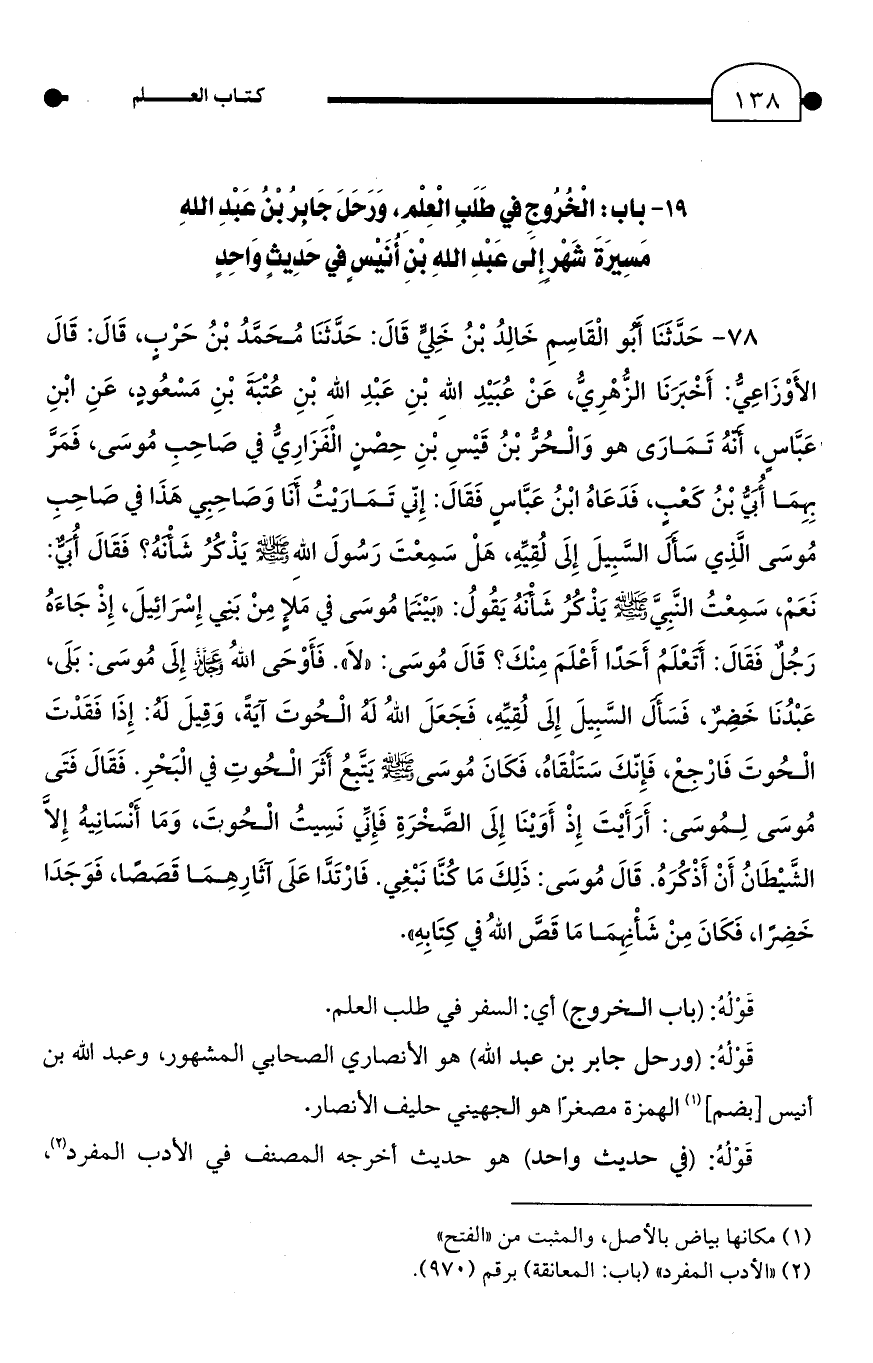 ١٣٨ كتاب العـــلم
١٩- باب: الْخُرُوجِ في طَلَبِ الْعِلْمِ، وَرَحَلَ جَابِرُ بْنُ عَبْدِ الله
مَسِيرَةَ شَهْرٍ إِلَى عَبْدِ الله بْنِ أُنَيْسٍ في حَدِيثٍ وَاحِدٍ
٧٨- حَدَّثَنَا أَبُو الْقَاسِمِ خَالِدُ بْنُ خَلِيٍّ قَالَ: حَدَّثَنَا مُحَمَّدُ بْنُ حَرْبٍ، قَالَ: قَالَ
الأَوْزَاعِيُّ: أَخْبَرَنَا الزُّهْرِيُّ، عَنْ عُبَيْدِ الله بْنِ عَبْدِ الله بْنِ عُتْبَةَ بْنِ مَسْعُودٍ، عَنِ ابْنِ
عَبَّاسٍ، أَنَّهُ تَمَارَى هو وَالْحُرُّ بْنُ قَيْسِ بْنِ حِصْنٍ الْفَزَارِيُّ في صَاحِبِ مُوسَى، فَمَرَّ
بِهِمَا أُبَيُّ بْنُ كَعْبٍ، فَدَعَاهُ ابْنُ عَبَّاسٍ فَقَالَ: إِنِّي تَمَارَيْتُ أَنَا وَصَاحِبِي هَذَا في صَاحِبِ
مُوسَى الَّذِي سَأَلَ السَّبِيلَ إِلَى لُقِيِّهِ، هَلْ سَمِعْتَ رَسُولَ الله ﷺ يَذْكُرُ شَأْنَهُ؟ فَقَالَ أُبَيٌّ:
نَعَمْ، سَمِعْتُ النَّبِيَّ ﷺ يَذْكُرُ شَأْنَهُ يَقُولُ: «بَيْنَمَا مُوسَى في مَلإٍ مِنْ بَنِي إِسْرَائِيلَ، إِذْ جَاءَهُ
رَجُلٌ فَقَالَ: أَتَعْلَمُ أَحَدًا أَعْلَمَ مِنْكَ؟ قَالَ مُوسَى: «لاَ». فَأَوْحَى اللهُ ﷿ إِلَى مُوسَى: بَلَى،
عَبْدُنَا خَضِرٌ، فَسَأَلَ السَّبِيلَ إِلَى لُقِيِّهِ، فَجَعَلَ اللهُ لَهُ الْحُوتَ آيَةً، وَقِيلَ لَهُ: إِذَا فَقَدْتَ
الْحُوتَ فَارْجِعْ، فَإِنَّكَ سَتَلْقَاهُ، فَكَانَ مُوسَى ﷺ يَتَّبِعُ أَثَرَ الْحُوتِ في الْبَحْرِ. فَقَالَ فَتَى
مُوسَى لِمُوسَى: أَرَأَيْتَ إِذْ أَوَيْنَا إِلَى الصَّخْرَةِ فَإِنِّي نَسِيتُ الْحُوتَ، وَمَا أَنْسَانِيهُ إِلاَّ
الشَّيْطَانُ أَنْ أَذْكُرَهُ. قَالَ مُوسَى: ذَلِكَ مَا كُنَّا نَبْغِي. فَارْتَدَّا عَلَى آثَارِهِمَا قَصَصًا، فَوَجَدَا
خَضِرًا، فَكَانَ مِنْ شَأْنِهِمَا مَا قَصَّ اللهُ في كِتَابِهِ».
قَوْلُهُ: (باب الخروج) أي: السفر في طلب العلم.
قَوْلُهُ: (ورحل جابر بن عبد الله) هو الأنصاري الصحابي المشهور، وعبد الله بن
أنيس [بضم](١) الهمزة مصغرًا هو الجهيني حليف الأنصار.
قَوْلُهُ: (في حديث واحد) هو حديث أخرجه المصنف في الأدب المفرد(٢)،
(١) مكانها بياض بالأصل، والمثبت من «الفتح»
(٢) «الأدب المفرد» (باب: المعانقة) برقم (٩٧٠).